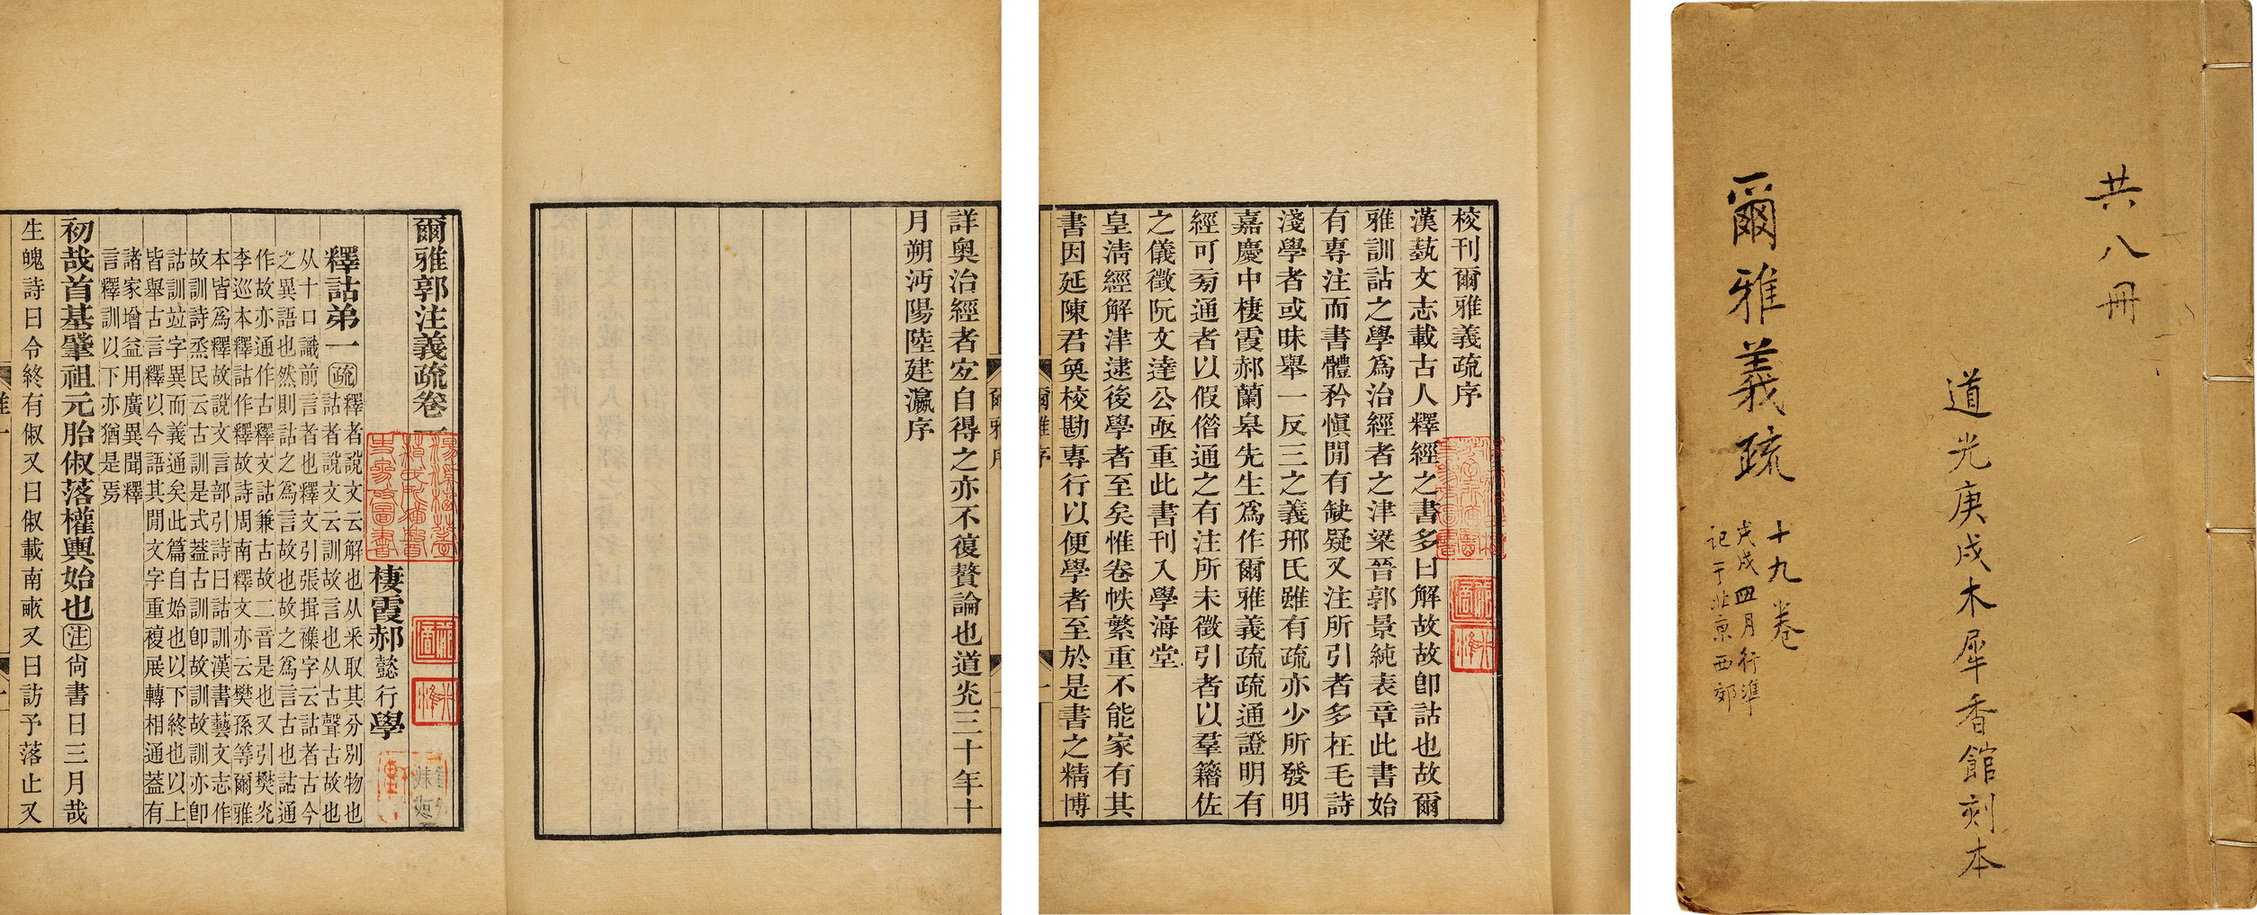 共八冊
道光庚戌木犀香館刻本
爾雅義疏
十九卷
戊戌四月行準
記于北京西郊
校刊爾雅義疏序
漢蓺文志載古人釋經之書多曰解故故卽詁也故爾
雅訓詁之學爲治經者之津梁晉郭景純表章此書始
有專注而書體矜愼閒有缺疑又注所引者多在毛詩
淺學者或昧舉一反三之義邢氏雖有疏亦少所發明
嘉慶中棲霞郝蘭皋先生爲作爾雅義疏疏通證明有
經可旁通者以假借通之有注所未徵引者以羣籍佐
之儀徵阮文達公亟重此書刊入學海堂
皇淸經解津逮後學者至矣惟卷帙繁重不能家有其
書因延陳君奐校勘專行以便學者至於是書之精博
爾雅序
一
詳奥治經者宜自得之亦不復贅論也道光三十年十
月朔沔陽陸建瀛序
爾雅郭注義疏卷一
棲霞郝懿行學
釋詁弟一
疏
釋者說文云解也从釆取其分別物也
詁者說文云訓故言也从古聲古故也
从十口識前言者也釋文引張揖襍字云詁者古今
之異語也然則詁之爲言故也故之爲言古也詁通
作故亦通作古釋文詁兼古故二音是也又引樊光
李巡本釋詁作釋故詩周南釋文亦云樊孫等爾雅
本皆爲釋故說文言部引詩曰詁訓漢書藝文志作
故訓詩烝民云古訓是式蓋古訓卽故訓故訓亦卽
詁訓竝字異而義通矣此篇自始也以下終也以上
皆舉古言釋以今語其閒文字重複展轉相通蓋有
諸家增益用廣異聞釋
言釋訓以下亦猶是焉
初哉首基肇祖元胎俶落權輿始也注尙書曰三月哉
生魄詩曰令終有俶又曰俶載南畝又曰訪予落止又